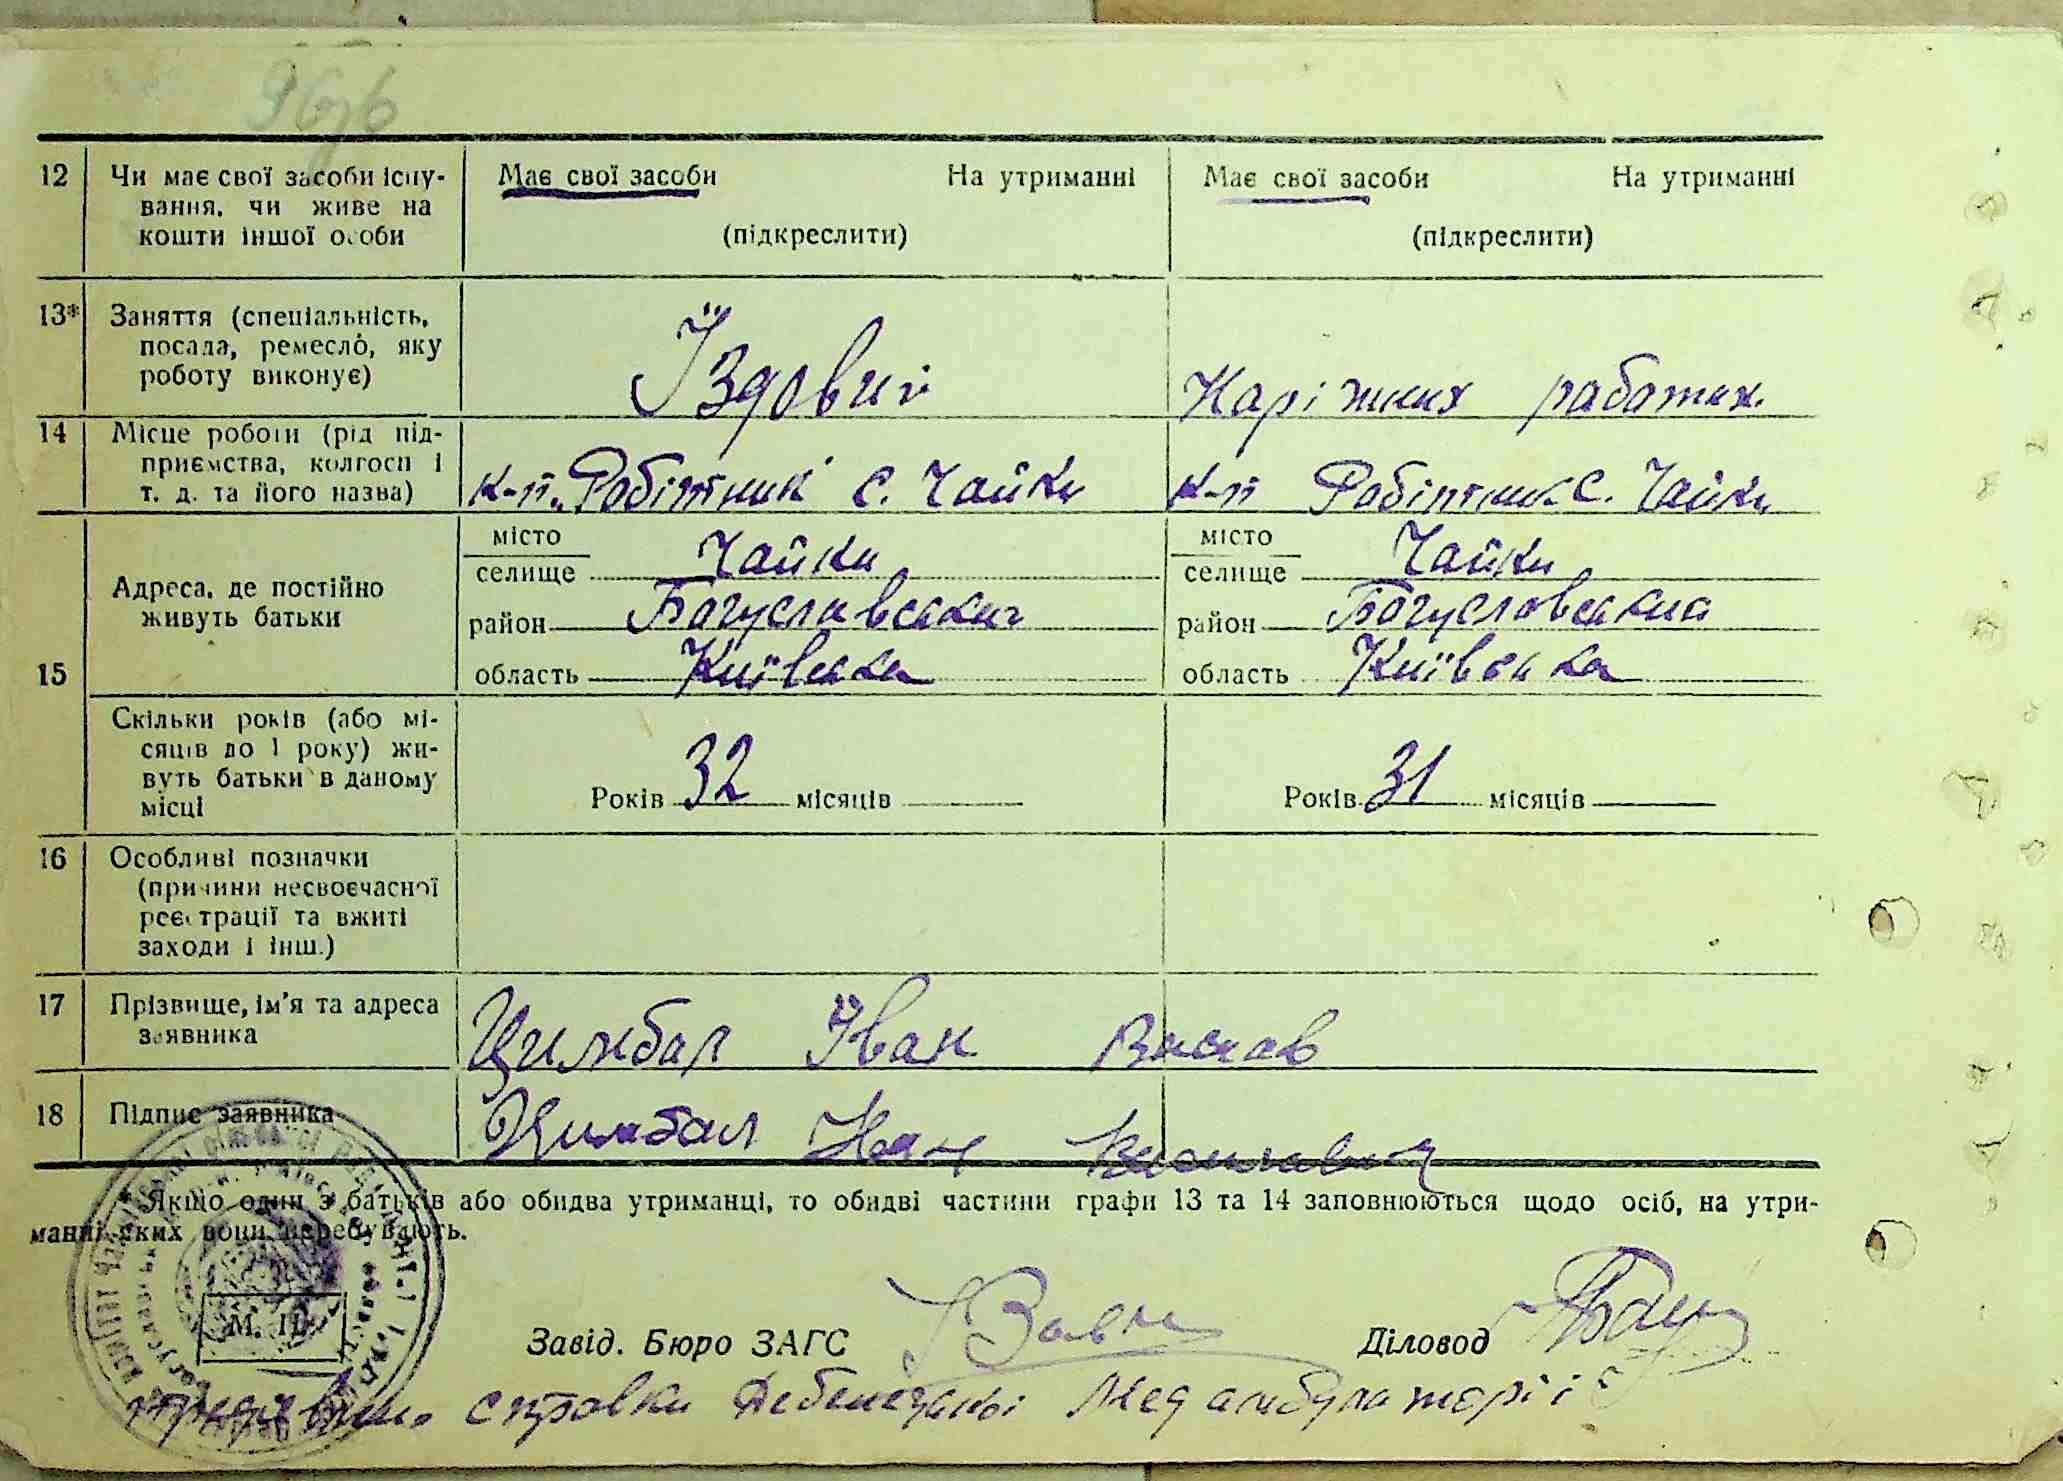 96
12 Чи має свої засоби існу- Має свої засоби На утриманні Має свої засоби На утриманні
вання, чи живе на
кошти іншої особи (підкреслити) (підкреслити)
13* Заняття (спеціальність,
посада, ремесло, яку
роботу виконує) Їздовий Наріжних работах
14 Місце роботи (рід під-
приємства, колгосп і
т. д. та його назва) к-п. Робітник с. Чайки к-п Робітник с. Чайки
15 Адреса, де постійно
живуть батьки
місто місто
селище Чайки селище Чайки
район Богуславський район Богуславский
область Київська область Київська
Скільки років (або мі-
сяців до 1 року) жи-
вуть батьки в даному
місці
Років 32 місяців Років 31 місяців
16 Особливі позначки
(причини несвоєчасної
реєстрації та вжиті
заходи і інш.)
17 Прізвище, ім'я та адреса
заявника Цимбал Іван Васильв
18 Підпис заявника Цимбал Иван Василавич
*Якщо один з батьків або обидва утриманці, то обидві частини графи 13 та 14 заповнюються щодо осіб, на утри-
манні яких вони перебувають.
М. П.
Завід. Бюро ЗАГС Діловод
справки Медамбулаторії